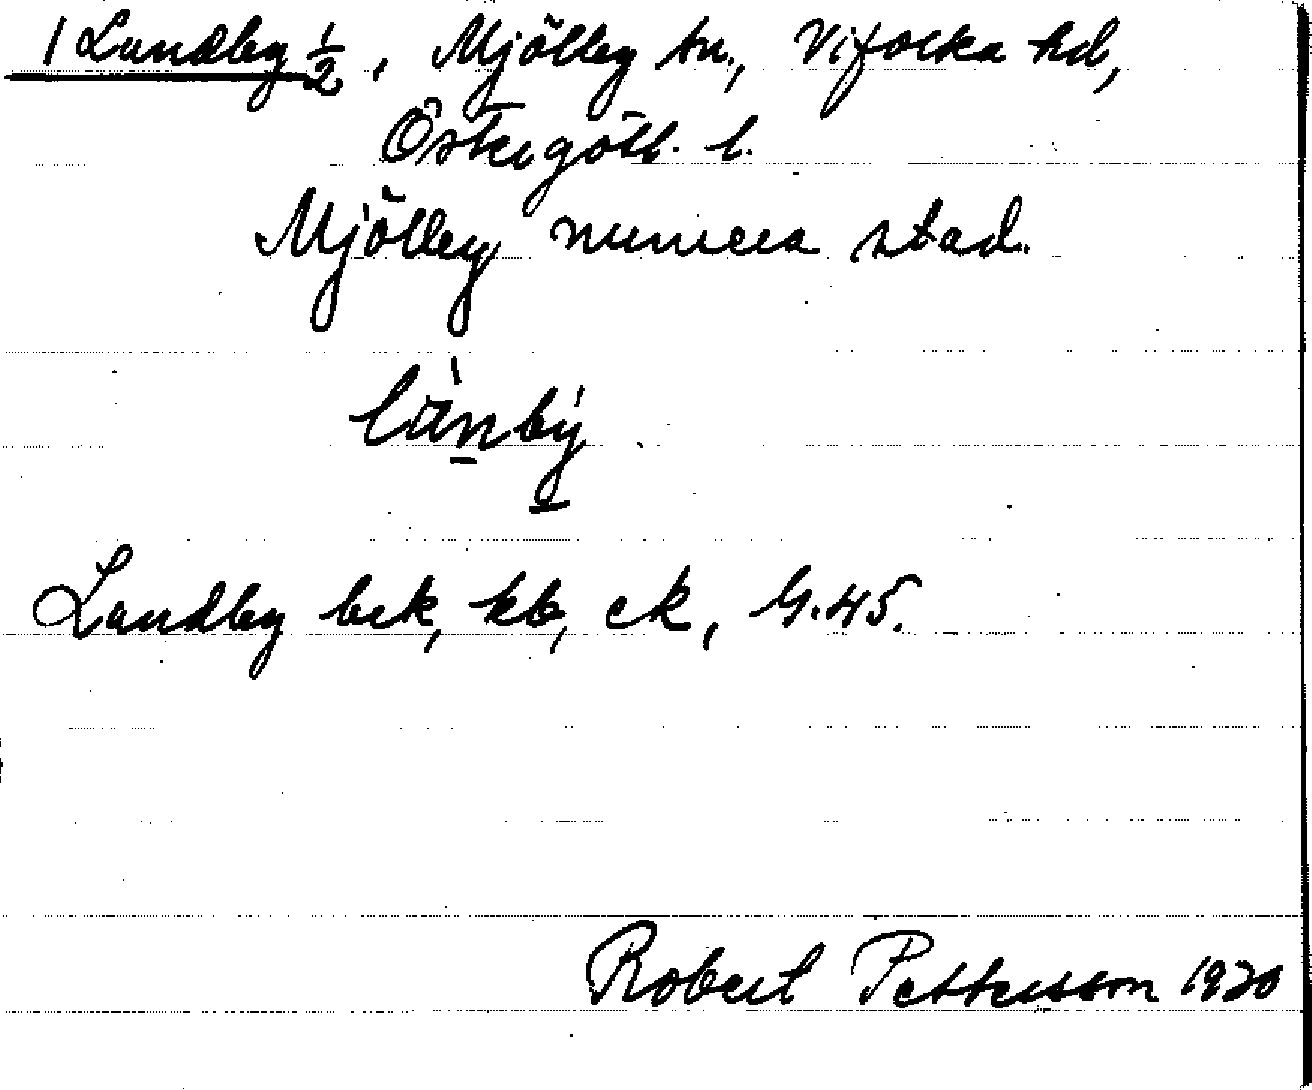 1 Lundby 1/2, Mjölby sn., Vifolka hd,
Östergötl. l.
Mjölby numera stad.
lùnbý
Lundby bek, kb, ek, G.45.
Robert Pettersson 1920